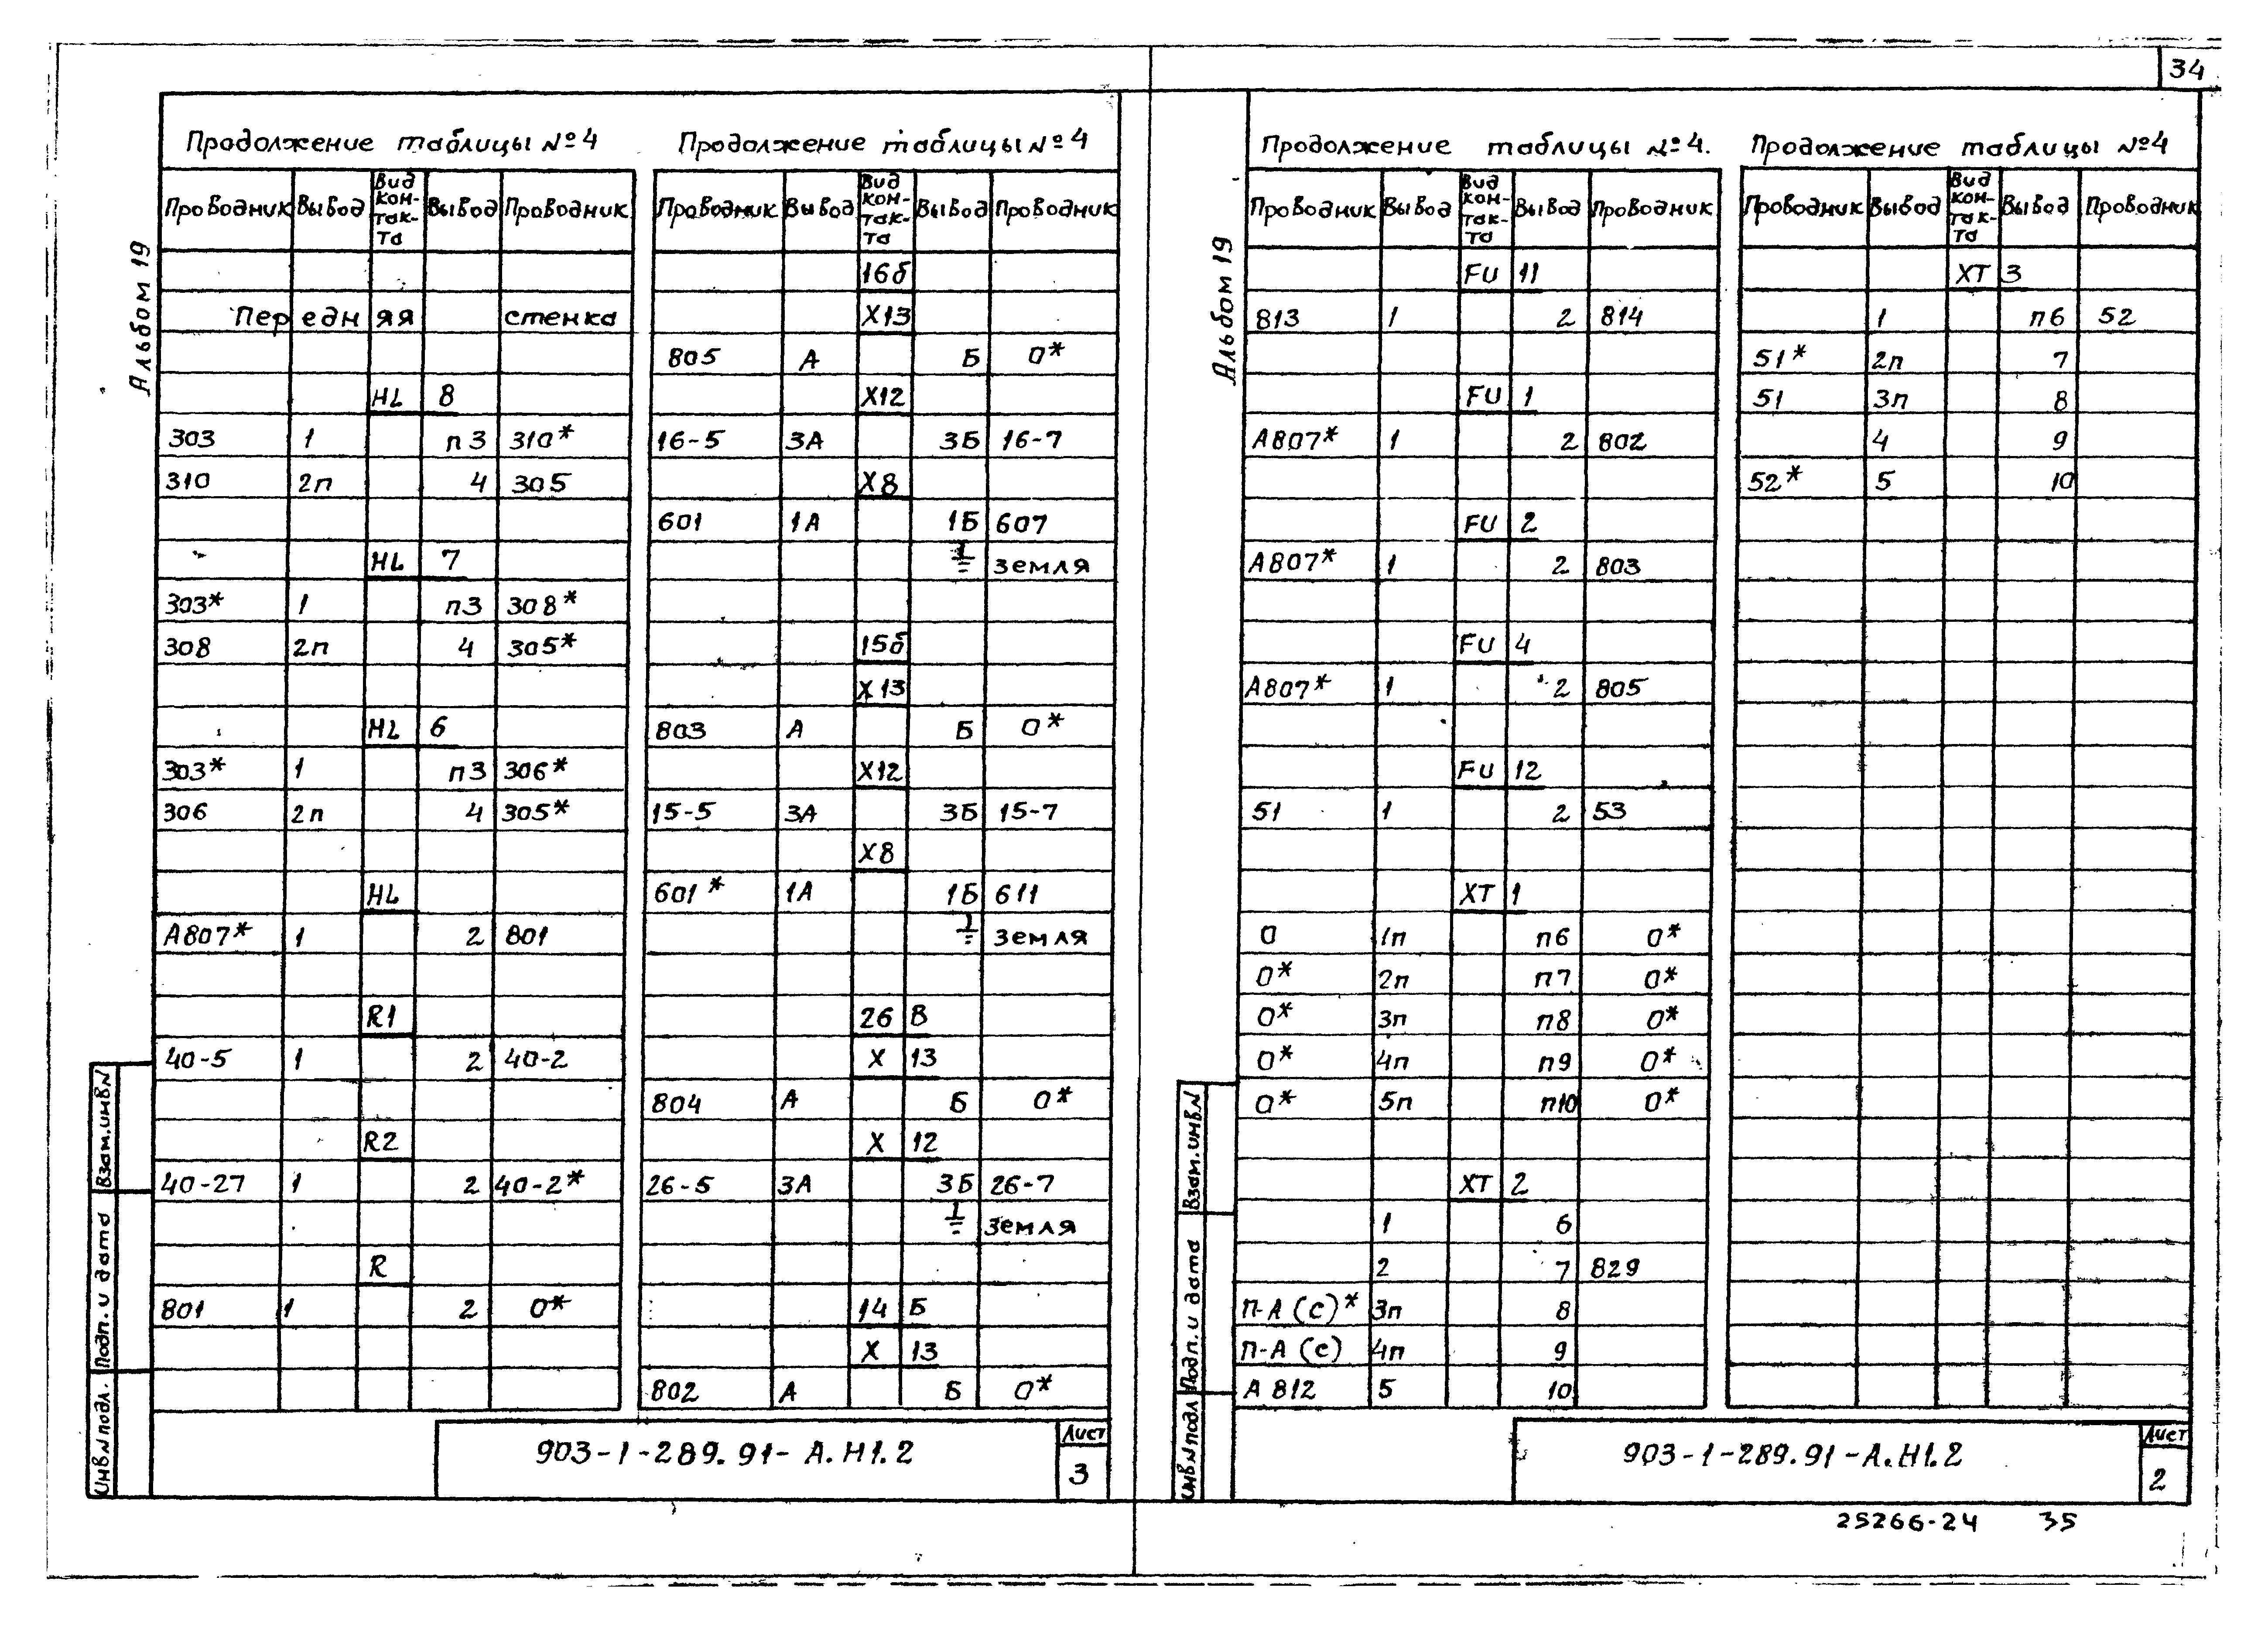 34
Альбом 19
Продолжение таблицы №4
Проводник Вывод Вид кон- так- та Вывод Проводник
Передняя стенка
HL 8
303 1 п3 310*
310 2п 4 305
HL 7
303* 1 п3 308*
308 2п 4 305*
HL 6
303* 1 п3 306*
306 2п 4 305*
HL
А807* 1 2 801
R1
40-5 1 2 40-2
R2
40-27 1 2 40-2*
R
801 1 2 0*
Продолжение таблицы №4
Проводник Вывод Вид кон- так- та Вывод Проводник
16б
X13
805 А Б 0*
X12
16-5 3А 3Б 16-7
X8
601 1А 1Б 607
⏚ земля
15б
X13
803 А Б 0*
X12
15-5 3А 3Б 15-7
X8
601* 1А 1Б 611
⏚ земля
26 В
X 13
804 А Б 0*
X 12
26-5 3А 3Б 26-7
⏚ земля
14 Б
X 13
802 А Б 0*
Взам.инв.N
Подп. и дата
Инв.N подл.
903-1-289.91-А.Н1.2
Лист
3
Альбом 19
Продолжение таблицы №4.
Проводник Вывод Вид кон- так- та Вывод Проводник
FU 11
813 1 2 814
FU 1
А807* 1 2 802
FU 2
А807* 1 2 803
FU 4
А807* 1 2 805
FU 12
51 1 2 53
XT 1
0 1п п6 0*
0* 2п п7 0*
0* 3п п8 0*
0* 4п п9 0*
0* 5п п10 0*
XT 2
1 6
2 7 829
П-А (с)* 3п 8
П-А (с) 4п 9
А 812 5 10
Продолжение таблицы №4
Проводник Вывод Вид кон- так- та Вывод Проводник
XT 3
1 п6 52
51* 2п 7
51 3п 8
4 9
52* 5 10
Взам.инв.N
Подп. и дата
Инв.N подл
903-1-289.91-А.Н1.2
Лист
2
25266-24 35